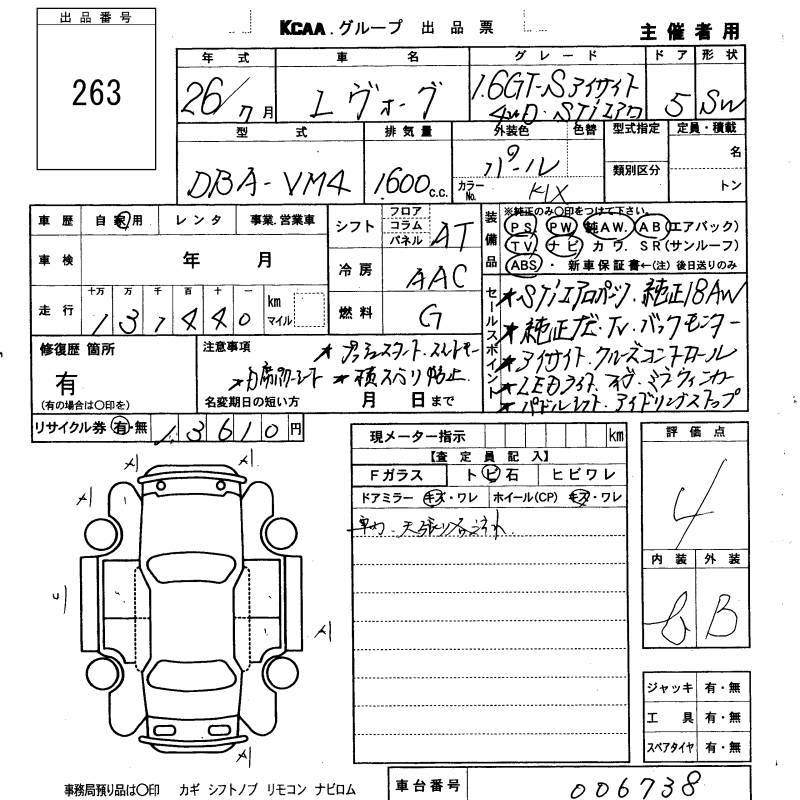 出品番号
263
KCAA.グループ 出品票
主催者用
年式 車名 グレード ドア 形状
26/7月 レヴォーグ 1.6GT-Sアイサイト 5 SW
4WD・STIエアロ
型式 排気量 外装色 色替 型式指定 定員・積載
DBA-VM4 1600c.c. パール 名
類別区分
カラーNo. K1X トン
車歴 自家用 レンタ 事業.営業車
シフト フロア コラム パネル AT
装備品 ※純正のみ○印をつけて下さい。
PS PW 純AW. AB(エアバック)
TV ナビ カワ. SR(サンルーフ)
ABS ・ 新車保証書←(注) 後日送りのみ
車検 年 月
冷房 AAC
走行 十万 万 千 百 十 一 km マイル
131440
燃料 G
セールスポイント
★STIエアロパーツ. 純正18AW
★純正ナビ・TV バックモニター
★アイサイト クルーズコントロール
★LEDライト
★パドルシフト・アイドリングストップ
修復歴 箇所
有
(有の場合は○印を)
注意事項
★プッシュスタート.
★横スベリ防止
名変期日の短い方 月 日まで
リサイクル券 有・無 13610円
現メーター指示 km
【査定員記入】
Fガラス トビ石 ヒビワレ
ドアミラー キズ・ワレ ホイール(CP) キズ・ワレ
評価点
4
内装 外装
B
ジャッキ 有・無
工具 有・無
スペアタイヤ 有・無
事務局預り品は○印 カギ シフトノブ リモコン ナビロム
車台番号 006738